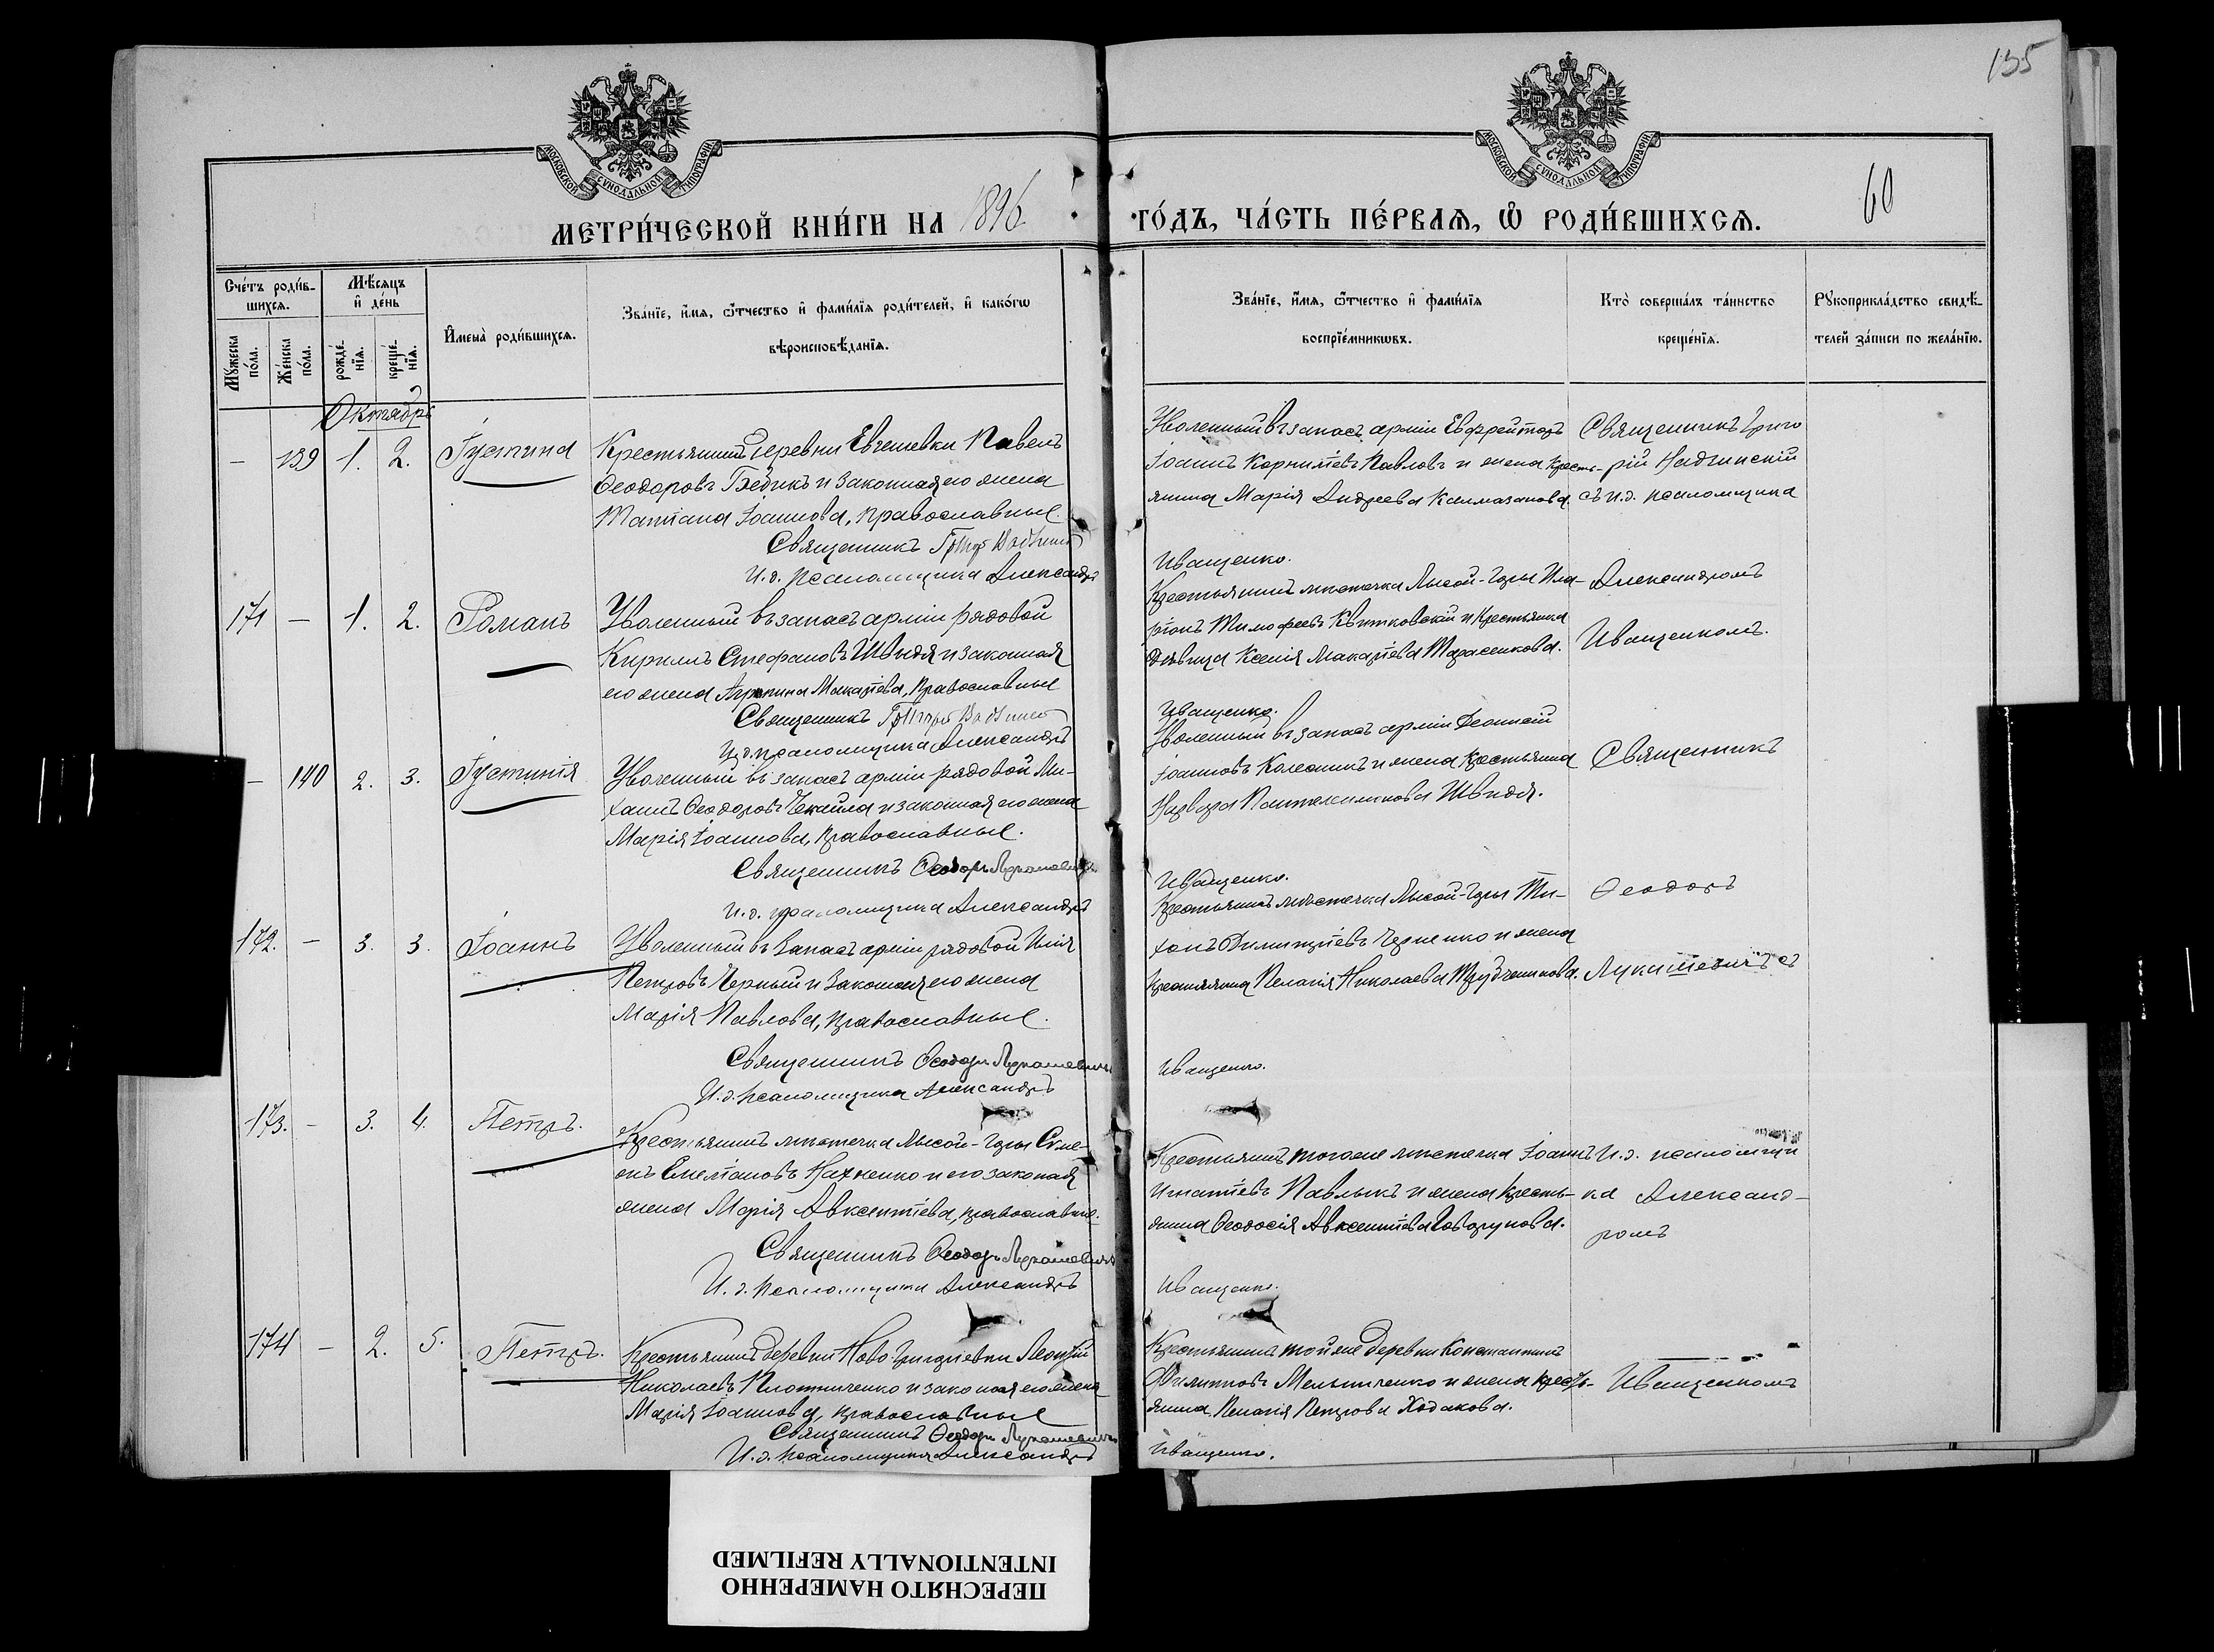 135
МОСКОВСКОЙ СѴНОДАЛЬНОЙ ТИПОГРАФІИ
МОСКОВСКОЙ СѴНОДАЛЬНОЙ ТИПОГРАФІИ
60
МЕТРИ́ЧЕСКОЙ КНИ́ГИ НА 1896
ГО́ДЪ, ЧА́СТЬ ПЕ́РВАѦ, Ѡ҆ РОДИ́ВШИХСѦ.
Сче́тъ роди́в-
шихсѧ.
Мѣ́сѧцъ
и҆ де́нь
Мꙋ́жеска
по́ла.
Же́нска
по́ла.
рожде́-
нїѧ.
креще́-
нїѧ.
И҆мена̀ роди́вшихсѧ.
Зва́нїе, и҆́мѧ, ѻ҆́тчество и҆ фами́лїѧ роди́телей, и҆ како́гѡ
вѣроисповѣ́данїѧ.
Зва́нїе, и҆́мѧ, ѻ҆́тчество и҆ фами́лїѧ
воспрїе́мникѡвъ.
Кто̀ соверша́лъ та́инство
креще́нїѧ.
Рꙋкоприкла́дство свидѣ́-
телей за́писи по жела́нїю.
Октябрь
— 139 1. 2. Іустина
Крестьянинъ деревни Евгешевки Павелъ
Ѳеодоровъ Бедикъ и законная его жена
Татіана Іоаннова, православные.
Священникъ
И. д. псаломщика Александръ
Уволенный въ запасъ арміи Ефрейторъ
Іоаннъ Корниліевъ Павловъ и жена кресть-
янина Марія Андреева Калмазанова
Иващенко.
Священникъ Григо
рій Надчинскій
съ и. д. псаломщика
171 — 1. 2. Романъ
Уволенный въ запасъ арміи рядовой
Кириллъ Стефановъ Швидя и законная
его жена Агрипина Макаріева, православные
Священникъ
И. д. псаломщика Александръ
Крестьянинъ мѣстечка Лысой-Горы Ила-
ріонъ Тимофеевъ Квитковскій и крестьянка
дѣвица Ксенія Макаріева Тарасенкова.
Иващенко.
Александромъ
Иващенкомъ.
— 140 2. 3. Іустинія
Уволенный въ запасъ арміи рядовой Ми-
хаилъ Ѳеодоровъ Чекайла и законная его жена
Марія Іоаннова, православные.
Священникъ Ѳеодоръ Лукашевичъ
И. д. псаломщика Александръ
Уволенный въ запасъ арміи
Іоанновъ Колесникъ и жена крестьянина
Пантелимонова Швидя.
Иващенко.
Священникъ
172. — 3. 3. Іоаннъ
Уволенный въ запасъ арміи рядовой Илія
Петровъ Черный и законная его жена
Марія Павлова, православные.
Священникъ Ѳеодоръ Лукашевичъ
И. д. псаломщика Александръ
Крестьянинъ мѣстечка Лысой-Горы Ти-
хонъ Димитріевъ Черненко и жена
крестьянина Пелагія Николаева Трубченинова.
Иващенко.
Ѳеодоръ
Лукашевичъ съ
173. — 3. 4. Петръ.
Крестьянинъ мѣстечка Лысой-Горы Симе-
онъ Емеліановъ Нахненко и его законная
жена Марія Авксентіева, православные.
Священникъ Ѳеодоръ Лукашевичъ
И. д. псаломщика Александръ
Крестьянинъ тогоже мѣстечка Іоаннъ
Игнатіевъ Павлыкъ и жена кресть-
янина Ѳеодосія Авксентіева Говорунова.
Иващенко.
И. д. псаломщи
ка Александ-
ромъ
174 — 2. 5. Петръ.
Крестьянинъ деревни Ново-Григоріевки Леонтій
Николаевъ Плотниченко и законная его жена
Марія Іоаннова, православные
Священникъ Ѳеодоръ Лукашевичъ
И. д. псаломщика Александръ
Крестьянинъ тойже деревни Константинъ
Филипповъ Мельниченко и жена кресть-
янина Пелагія Петрова Ходакова.
Иващенко.
Иващенкомъ
ПЕРЕСНЯТО НАМЕРЕННО
INTENTIONALLY REFILMED